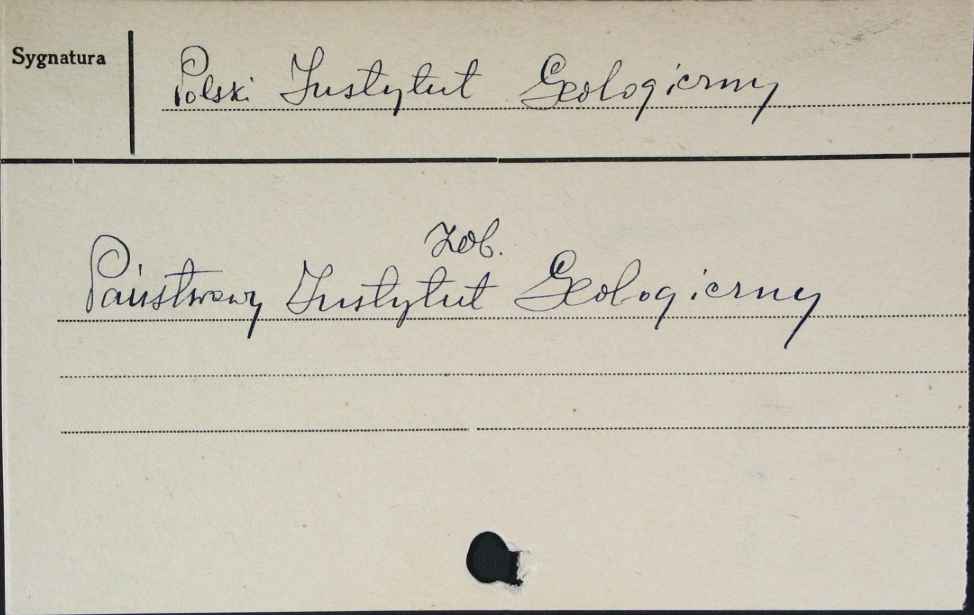 Sygnatura
Polski Instytut Geologiczny
Zob.
Państwowy Instytut Geologiczny